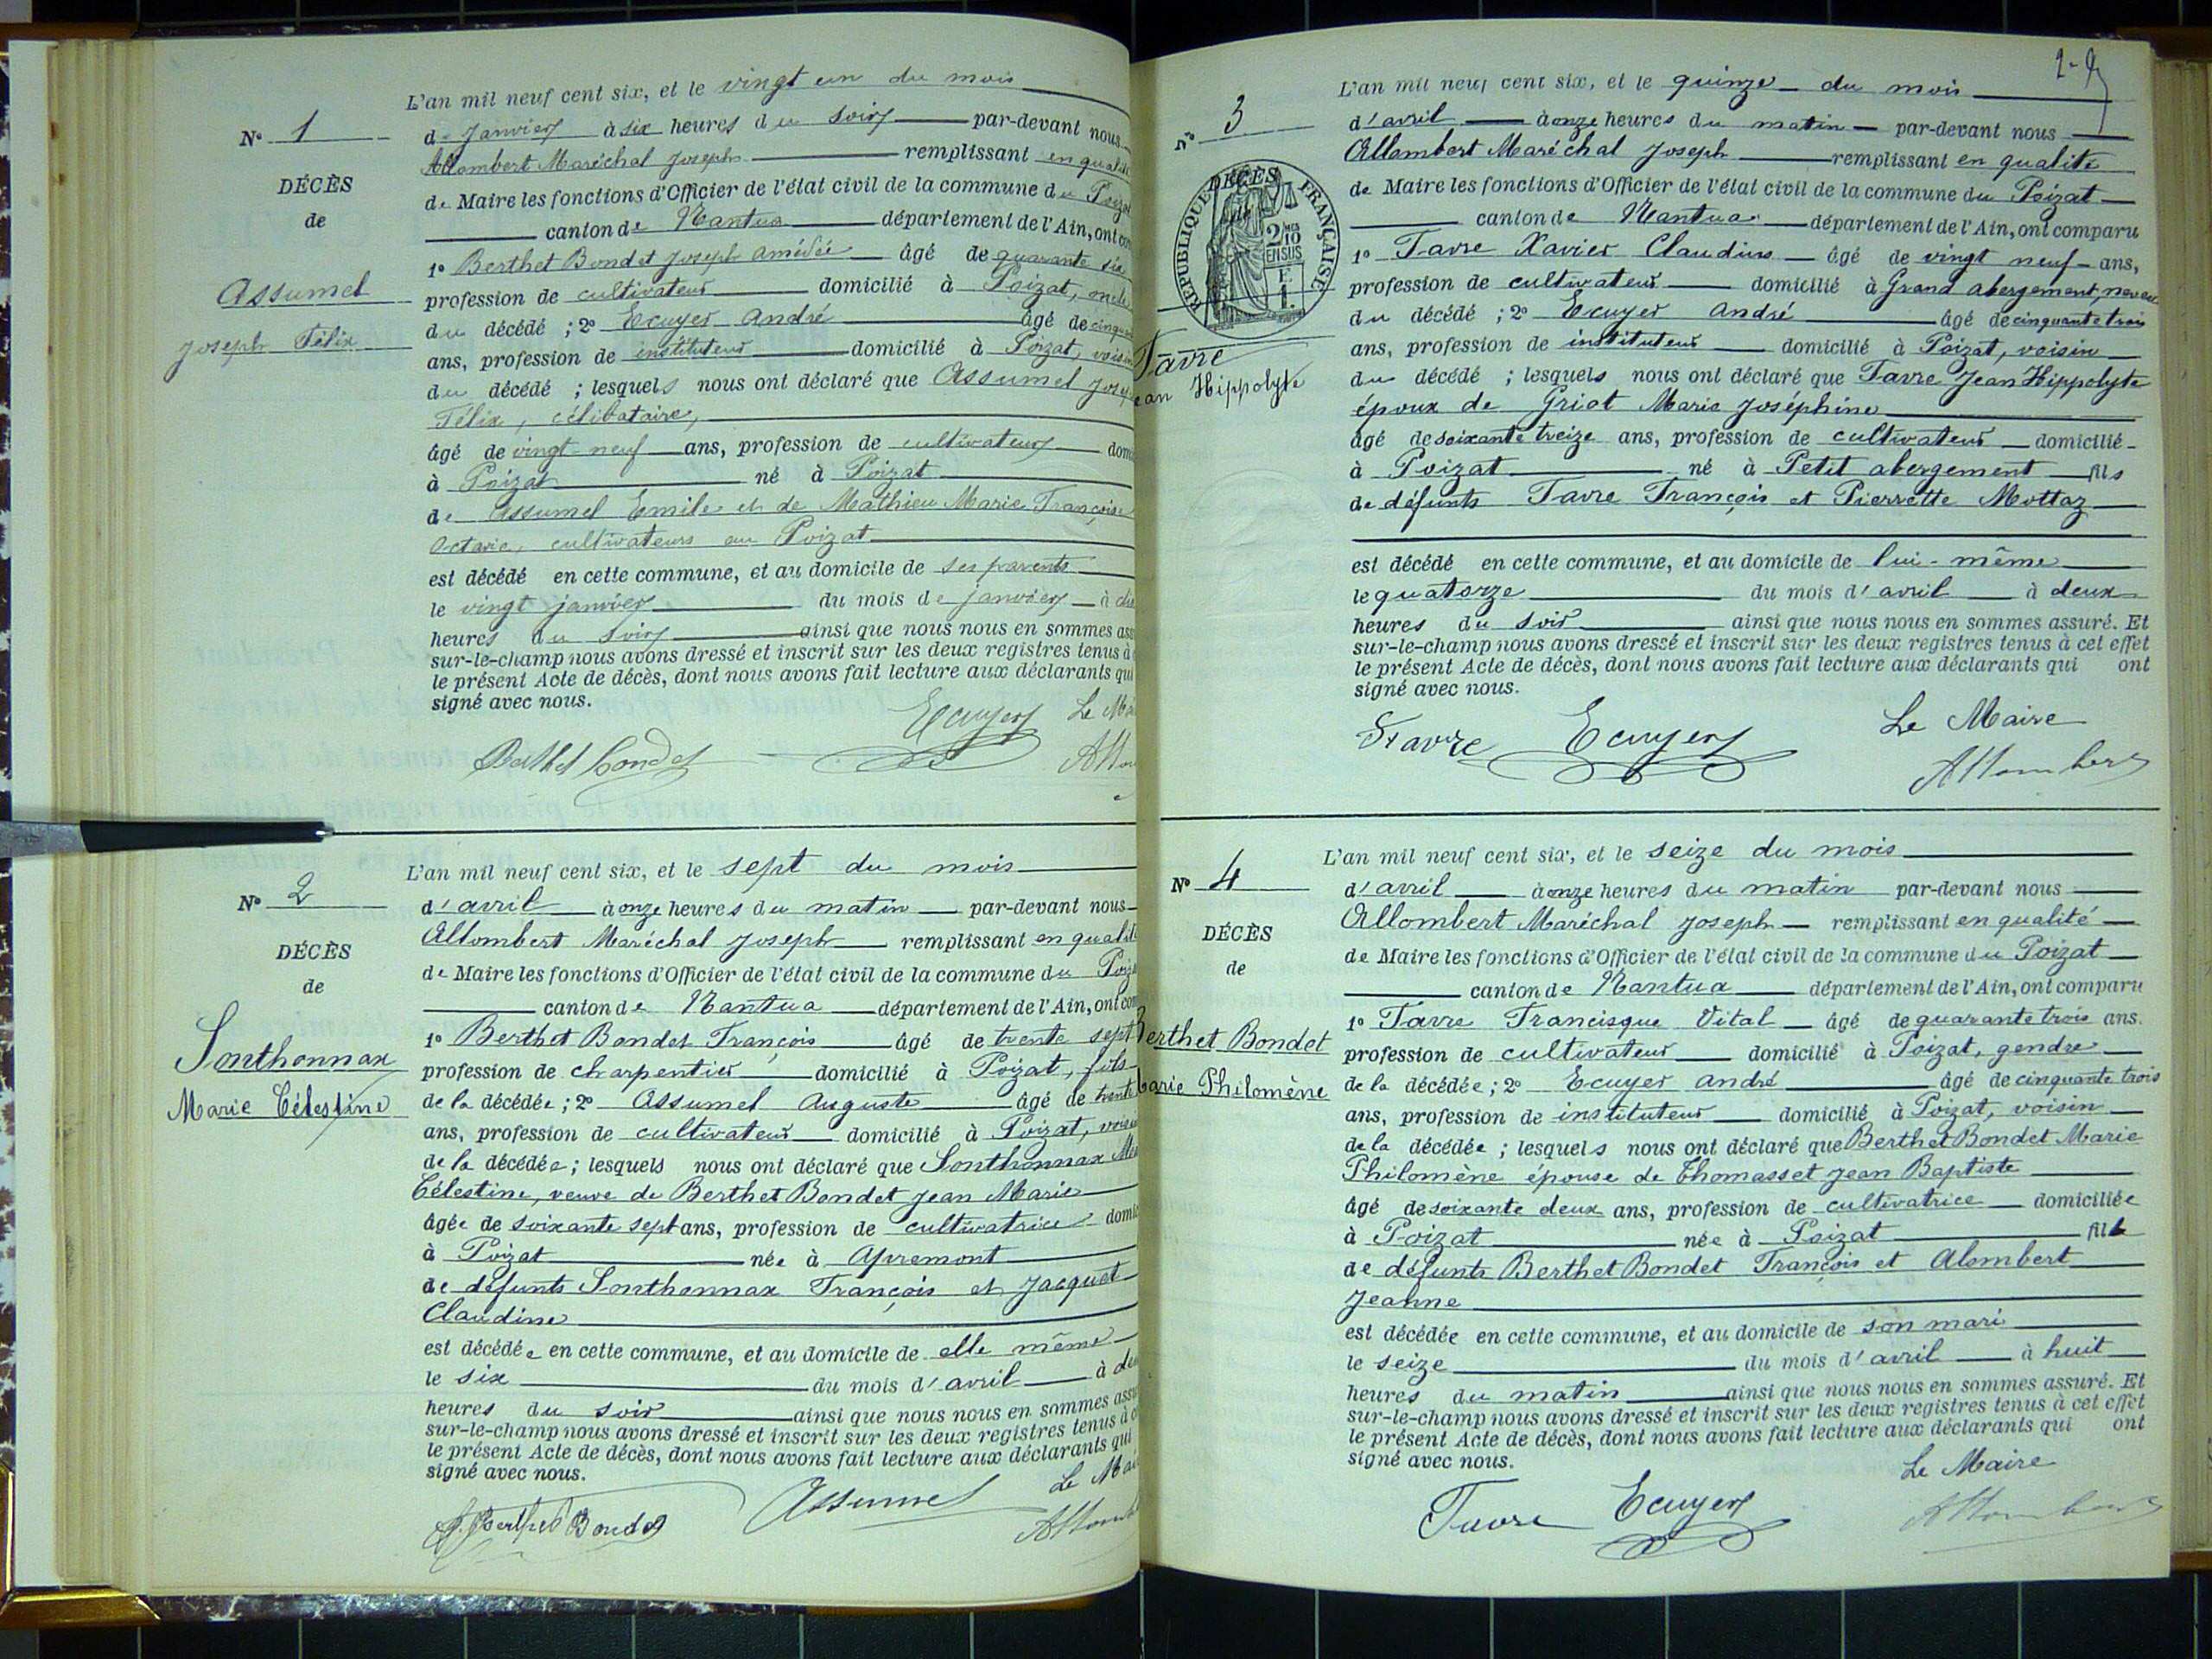 N° 1
DÉCÈS
de
Assumel
Joseph Félix
L'an mil neuf cent six, et le vingt un du mois
de Janvier à six heures du soir par-devant nous
Allombert Maréchal Joseph remplissant en qualité
de Maire les fonctions d'Officier de l'état civil de la commune du Poizat
canton de Nantua département de l'Ain, ont
1° Berthet Bondet Joseph Amédée âgé de quarante six
profession de cultivateur domicilié à Poizat, oncle
du décédé ; 2° Ecuyer André âgé de
ans, profession de instituteur domicilié à Poizat, voisin
du décédé ; lesquels nous ont déclaré que Assumel Joseph
Félix, célibataire,
âgé de vingt-neuf ans, profession de cultivateur
à Poizat né à Poizat
de Assumel Emile et de Mathieu Marie Françoise
Octavie, cultivateurs au Poizat
est décédé en cette commune, et au domicile de ses parents
le vingt janvier du mois de janvier à
heures du soir ainsi que nous nous en sommes
sur-le-champ nous avons dressé et inscrit sur les deux registres tenus à
le présent Acte de décès, dont nous avons fait lecture aux déclarants qui
signé avec nous.
Ecuyer Le
Berthet Bondet
N° 2
DÉCÈS
de
Sonthonnax
Marie Célestine
L'an mil neuf cent six, et le sept du mois
d'avril à onze heures du matin par-devant nous
Allombert Maréchal Joseph remplissant en qualité
de Maire les fonctions d'Officier de l'état civil de la commune du
canton de Nantua département de l'Ain, ont
1° Berthet Bondet François âgé de trente sept
profession de charpentier domicilié à Poizat, fils
de la décédée ; 2° Assumel Auguste âgé de trente
ans, profession de cultivateur domicilié à Poizat,
de la décédée ; lesquels nous ont déclaré que Sonthonnax
Célestine, veuve de Berthet Bondet Jean Marie
âgée de soixante sept ans, profession de cultivatrice
à Poizat née à Apremont
de défunts Sonthonnax François et Jacquet
Claudine
est décédée en cette commune, et au domicile de elle même
le six du mois d'avril à
heures du soir ainsi que nous nous en sommes
sur-le-champ nous avons dressé et inscrit sur les deux registres tenus à
le présent Acte de décès, dont nous avons fait lecture aux déclarants qui
signé avec nous.
Le
Berthet Bondet Assumel
N° 3
DÉCÈS
de
RÉPUBLIQUE FRANÇAISE
2/10
EN SUS
Favre
Hippolyte
L'an mil neuf cent six, et le quinze du mois
d'avril à onze heures du matin par-devant nous
Allombert Maréchal Joseph remplissant en qualité
de Maire les fonctions d'Officier de l'état civil de la commune du Poizat
canton de Nantua département de l'Ain, ont comparu
1° Favre Xavier Claudius âgé de vingt neuf ans,
profession de cultivateur domicilié à Grand abergement, neveu
du décédé ; 2° Ecuyer André âgé de cinquante trois
ans, profession de instituteur domicilié à Poizat, voisin
du décédé ; lesquels nous ont déclaré que Favre Jean Hippolyte
époux de Griot Marie Joséphine
âgé de soixante treize ans, profession de cultivateur domicilié
à Poizat né à Petit abergement fils
de défunts Favre François et Pierrette Mottaz
est décédé en cette commune, et au domicile de lui-même
le quatorze du mois d'avril à deux
heures du soir ainsi que nous nous en sommes assuré. Et
sur-le-champ nous avons dressé et inscrit sur les deux registres tenus à cet effet
le présent Acte de décès, dont nous avons fait lecture aux déclarants qui ont
signé avec nous.
Favre Ecuyer Le Maire
Allombert
N° 4
DÉCÈS
de
Berthet Bondet
Marie Philomène
L'an mil neuf cent six, et le seize du mois
d'avril à onze heures du matin par-devant nous
Allombert Maréchal Joseph remplissant en qualité
de Maire les fonctions d'Officier de l'état civil de la commune du Poizat
canton de Nantua département de l'Ain, ont comparu
1° Favre Francisque Vital âgé de quarante trois ans.
profession de cultivateur domicilié à Poizat, gendre
de la décédée ; 2° Ecuyer André âgé de cinquante trois
ans, profession de instituteur domicilié à Poizat, voisin
de la décédée ; lesquels nous ont déclaré que Berthet Bondet Marie
Philomène épouse de Thomasset Jean Baptiste
âgé de soixante deux ans, profession de cultivatrice domiciliée
à Poizat née à Poizat fille
de défunts Berthet Bondet François et Alombert
Jeanne
est décédée en cette commune, et au domicile de son mari
le seize du mois d'avril à huit
heures du matin ainsi que nous nous en sommes assuré. Et
sur-le-champ nous avons dressé et inscrit sur les deux registres tenus à cet effet
le présent Acte de décès, dont nous avons fait lecture aux déclarants qui ont
signé avec nous.
Le Maire
Favre Ecuyer Allombert